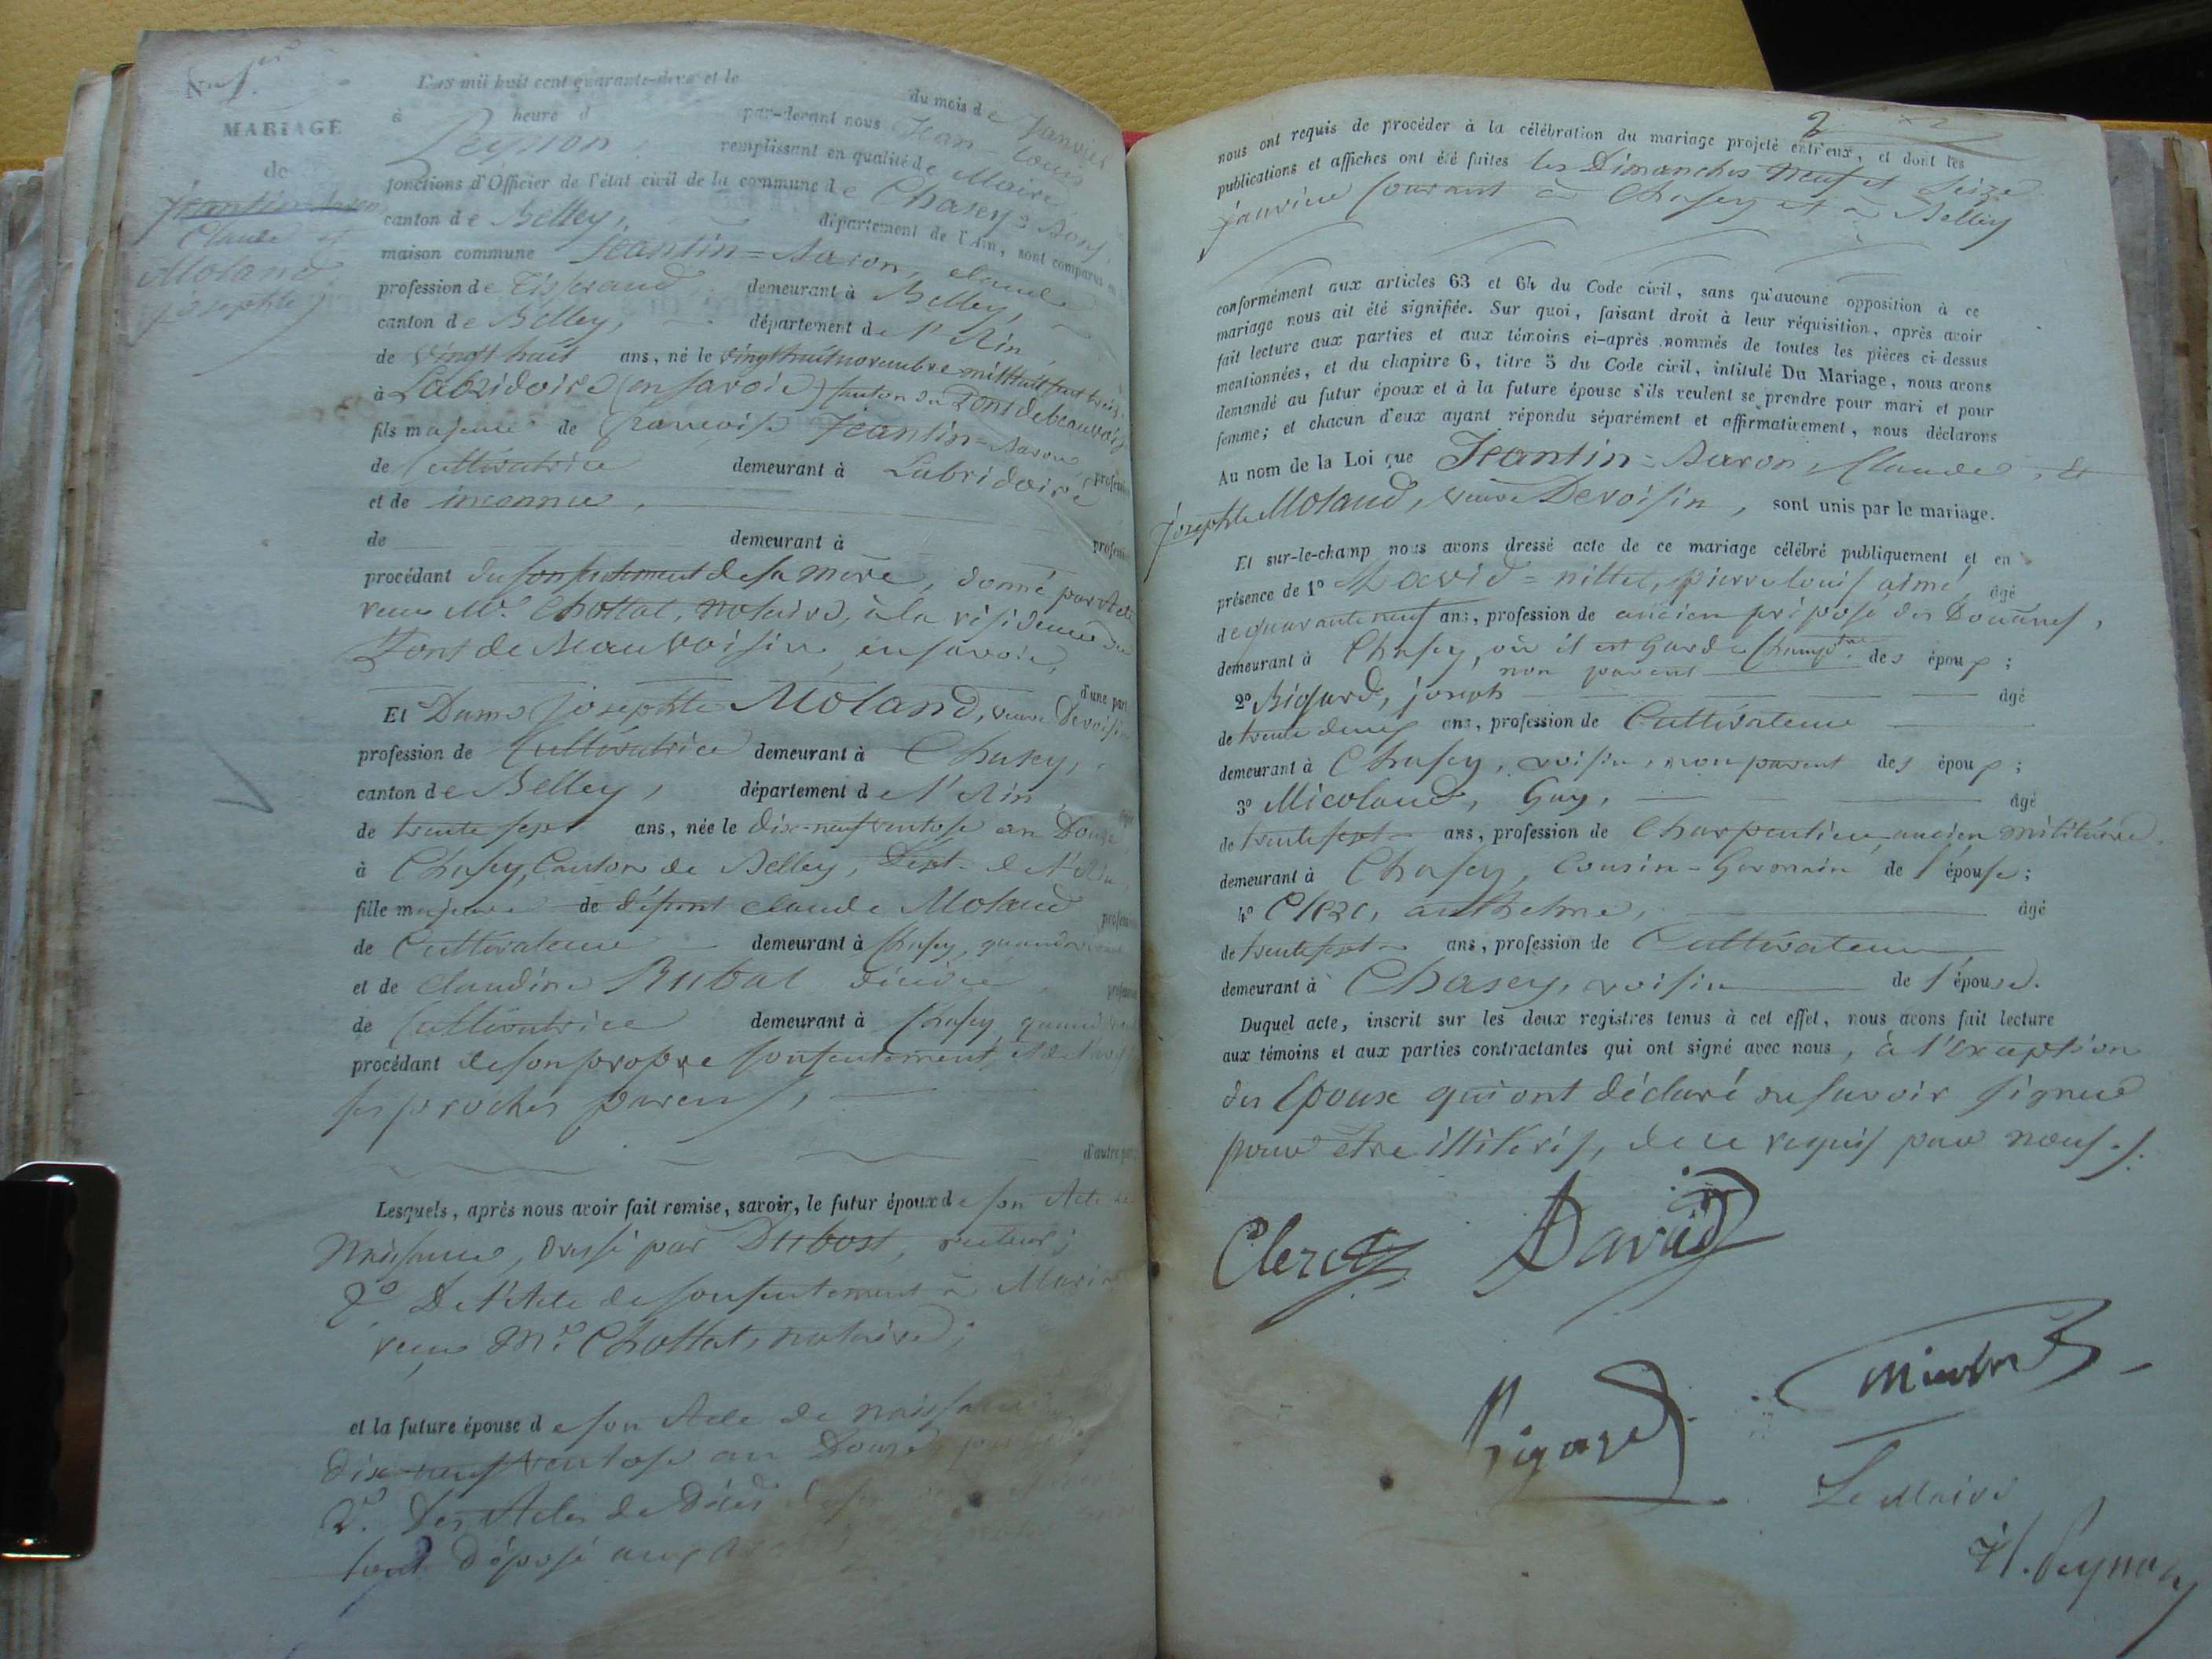 N° 1er
MARIAGE
de
Jeantin-Baron
Claude et
Moland
Josephte
L'an mil huit cent quarante-deux et le du mois de Janvier
à heure d par-devant nous Jean-Louis
Peysson, remplissant en qualité de Maire
fonctions d'Officier de l'état civil de la commune de Chasey-Bons,
canton de Belley, département de l'Ain, sont comparus en la
maison commune Jeantin=Baron, Claude
profession de Tisserand demeurant à Belley,
canton de Belley, département de l'Ain
de vingt huit ans, né le vingt huit novembre mil huit cent treize
à Labridoire (en Savoie) Canton du Pont de beauvoisin
fils majeur de Françoise Jeantin=Baron profession
de Cultivatrice demeurant à Labridoire
et de inconnu,
de demeurant à profession
procédant du consentement de sa mère, donné par Acte
reçu Me Chottat, notaire, à la résidence du
Pont de Beauvoisin en Savoie,
d'une part
Et Dame Josephte Moland, veuve Devoisin
profession de Cultivatrice demeurant à Chasey,
canton de Belley, département de l'Ain
de trente sept ans, née le dix-neuf ventose an Douze
à Chasey, Canton de Belley, Dépt. de l'Ain,
fille majeure de défunt Claude Moland profession
de Cultivateur demeurant à Chasey, quand vivait
et de Claudine Rubat décédée profession
de Cultivatrice demeurant à Chasey quand
procédant de son propre consentement, et de l'avis
ses proches parens,
d'autre part
Lesquels, après nous avoir fait remise, savoir, le futur époux de son Acte de
Naissance, dressé par Dubost, recteur;
2° De l'Acte de consentement à Mariage
reçu Me Chottat, notaire;
et la future épouse de son Acte de naissance
dix-neuf ventose an Douze
2° Des Actes de Décès
tout déposé aux
2
nous ont requis de procéder à la célébration du mariage projeté entr'eux, et dont les
publications et affiches ont été faites les Dimanches Neuf et Seize
janvier Courant à Chasey et à Belley
conformément aux articles 63 et 64 du Code civil, sans qu'aucune opposition à ce
mariage nous ait été signifiée. Sur quoi, faisant droit à leur réquisition, après avoir
fait lecture aux parties et aux témoins ci-après nommés de toutes les pièces ci-dessus
mentionnées, et du chapitre 6, titre 5 du Code civil, intitulé Du Mariage, nous avons
demandé au futur époux et à la future épouse s'ils veulent se prendre pour mari et pour
femme; et chacun d'eux ayant répondu séparément et affirmativement, nous déclarons
Au nom de la Loi que Jeantin=Baron, Claude, &
Josephte Moland, veuve Devoisin, sont unis par le mariage.
Et sur-le-champ nous avons dressé acte de ce mariage célébré publiquement et en
présence de 1° David=nillet, pierre louis aimé, âgé
de quarante neuf ans, profession de ancien préposé des Douanes,
demeurant à Chasey, où il est Garde Champtre des époux;
non parent
2° Bigard, joseph âgé
de trente deux ans, profession de Cultivateur
demeurant à Chasey, voisin, non parent des époux;
3° Micoland, Guy, âgé
de trente sept ans, profession de Charpentier, ancien militaire,
demeurant à Chasey, Cousin-Germain de l'épouse;
4° Clerc, anthelme, âgé
de trente sept ans, profession de Cultivateur
demeurant à Chasey, voisin de l'épouse.
Duquel acte, inscrit sur les deux registres tenus à cet effet, nous avons fait lecture
aux témoins et aux parties contractantes qui ont signé avec nous, à l'exception
des époux qui ont déclaré ne savoir signer
pour être illitérés, de ce requis par nous.
Clerc David
Bigard
Le Maire